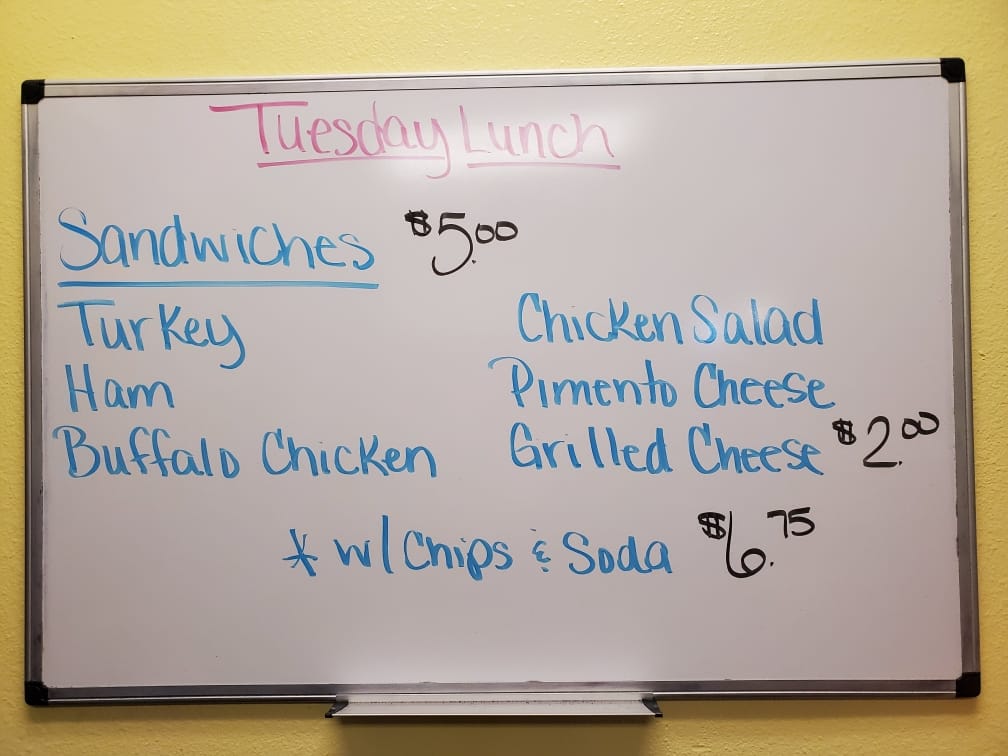 Tuesday Lunch
Sandwiches $5.00
Turkey
Ham
Buffalo Chicken
Chicken Salad
Pimento Cheese
Grilled Cheese $2.00
* w/ Chips & Soda $6.75